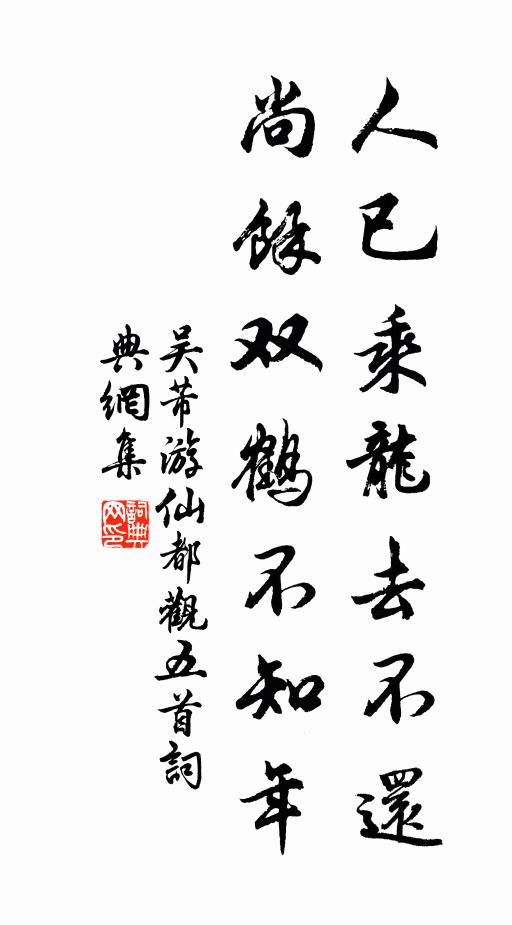 人已乘龍去不還
尚餘双鶴不知年
吴芾游仙都觀五首詞
典網集
詞典网印